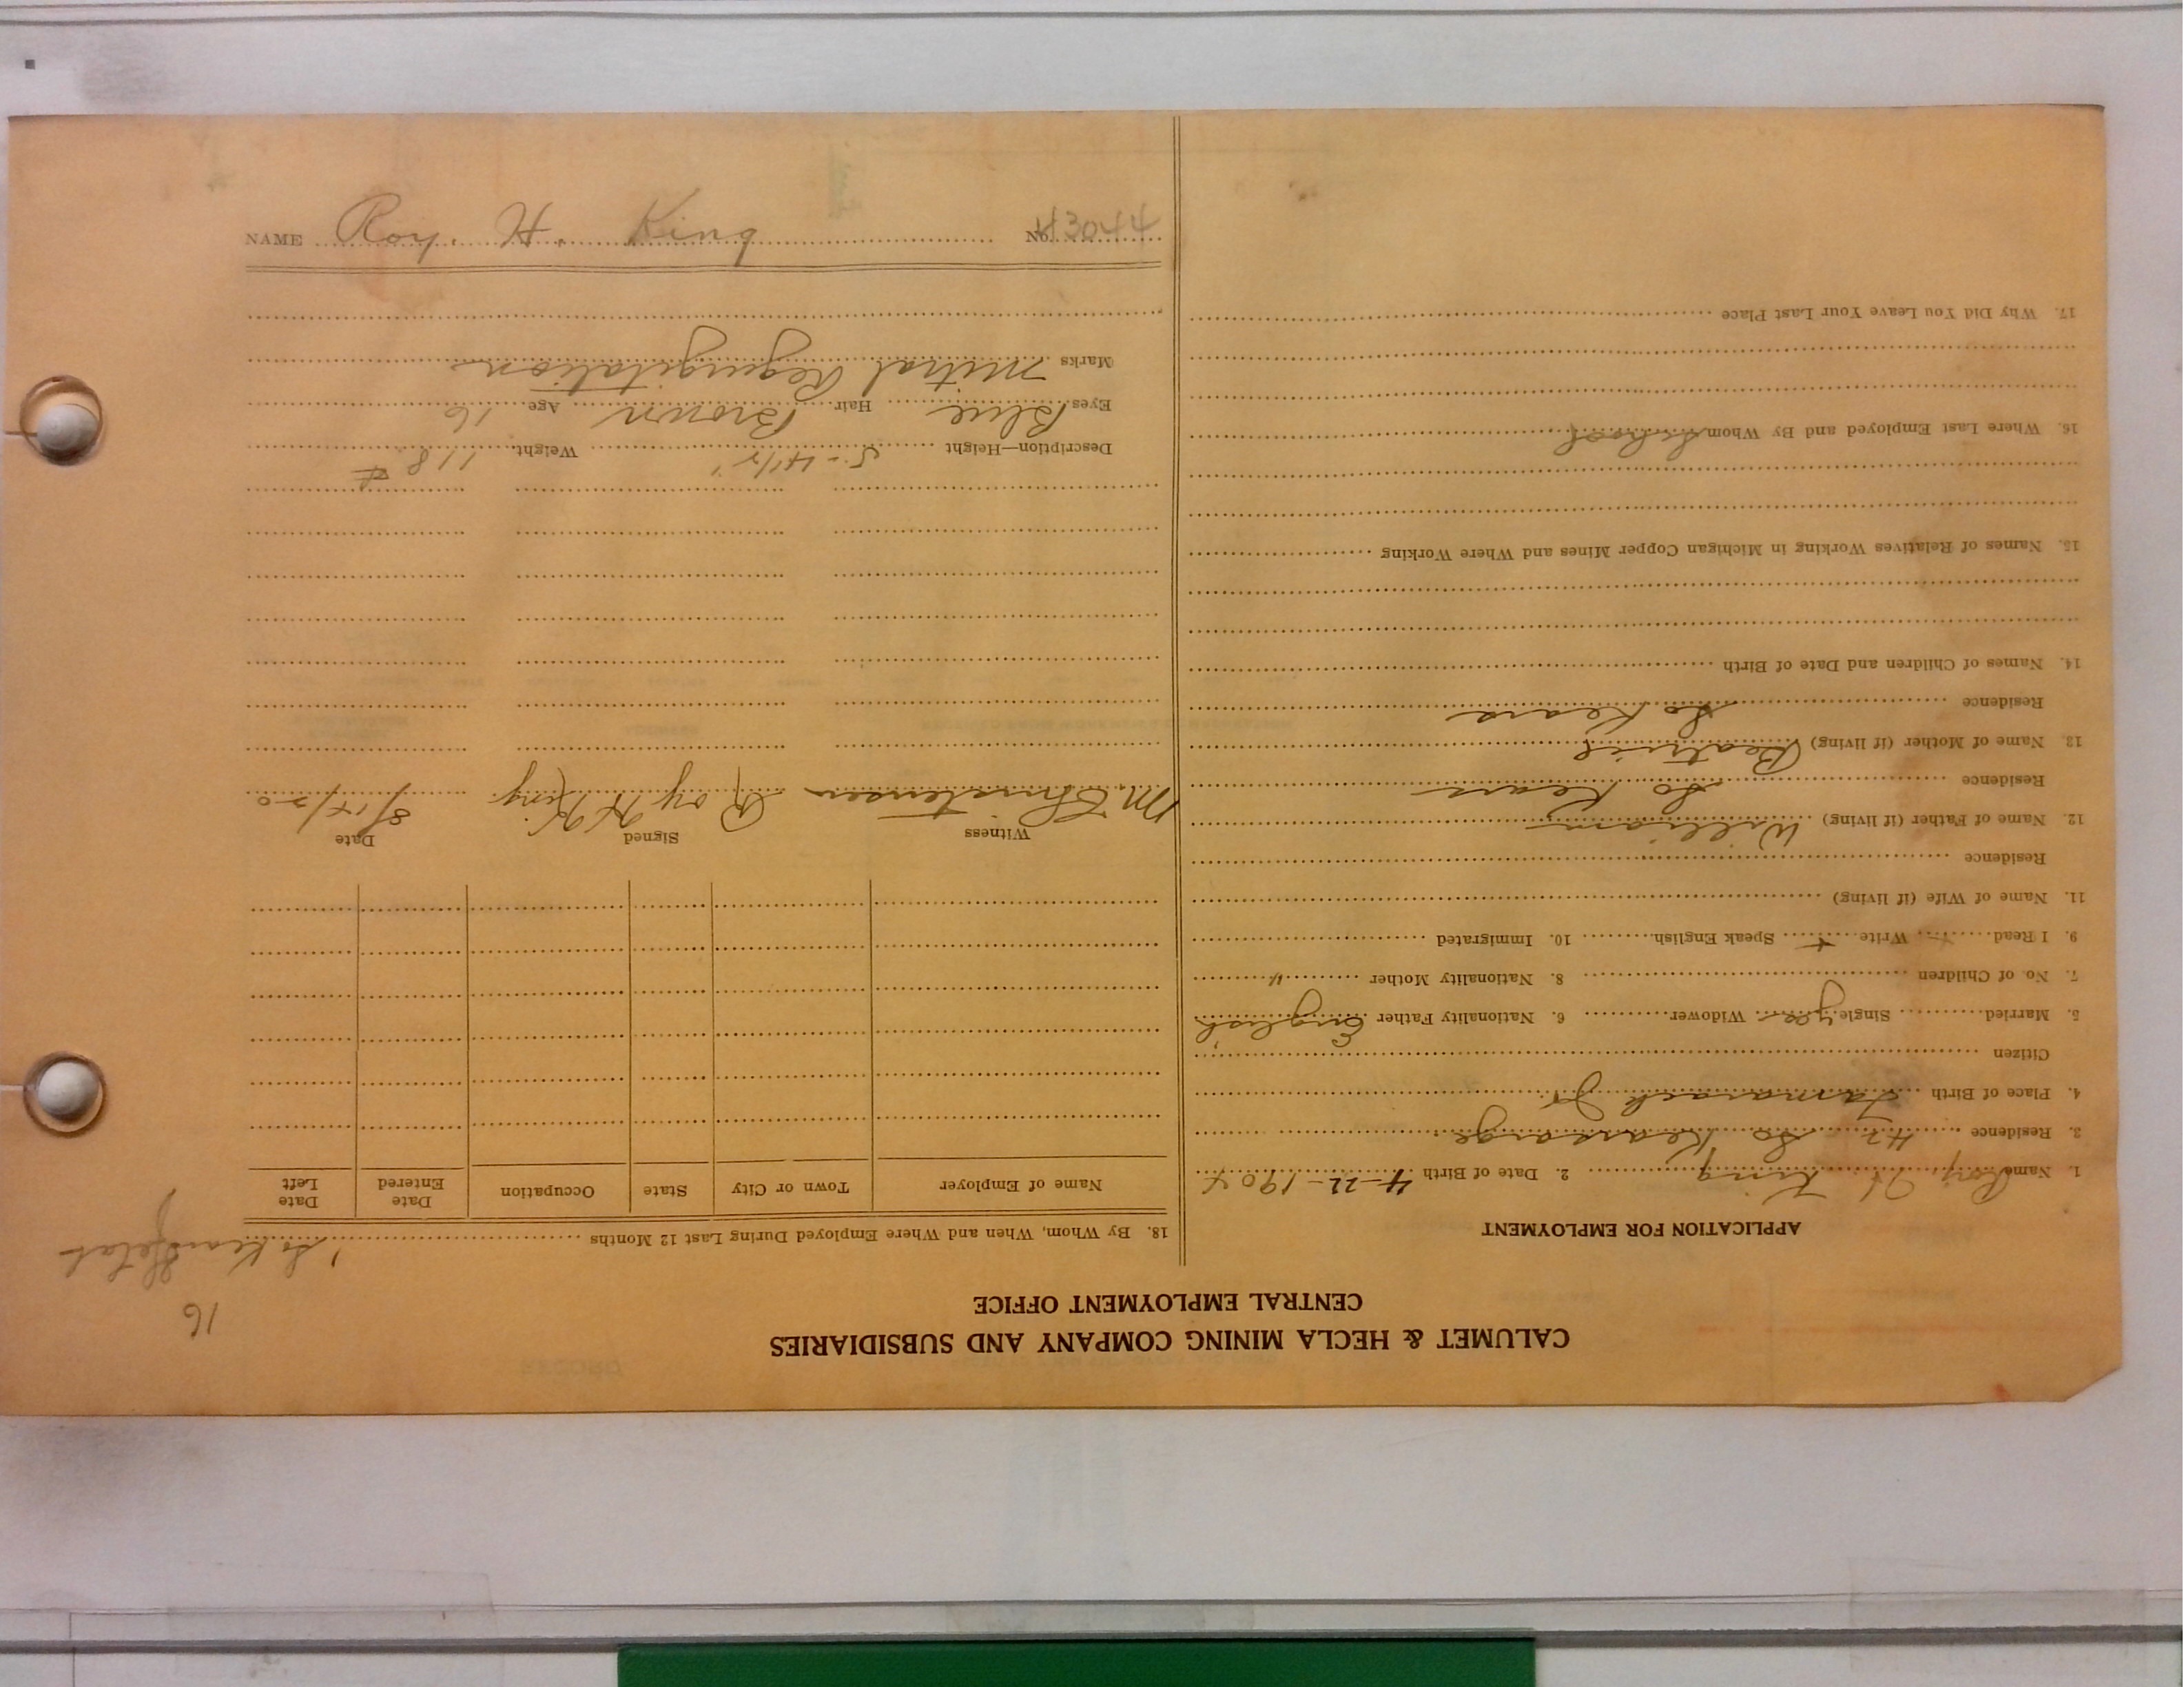 CALUMET & HECLA MINING COMPANY AND SUBSIDIARIES
CENTRAL EMPLOYMENT OFFICE
16
APPLICATION FOR EMPLOYMENT
1. Name Roy H King 2. Date of Birth 4-22-1904
3. Residence 42 So Kearsarge
4. Place of Birth Tamarack Jr
Citizen
5. Married Single yes Widower 6. Nationality Father English
7. No. of Children 8. Nationality Mother "
9. I Read Write + Speak English 10. Immigrated
11. Name of Wife (if living)
Residence
12. Name of Father (if living) William
Residence So Kears
13. Name of Mother (if living) Beatrice
Residence So Kears
14. Names of Children and Date of Birth
15. Names of Relatives Working in Michigan Copper Mines and Where Working
16. Where Last Employed and By Whom School
17. Why Did You Leave Your Last Place
18. By Whom, When and Where Employed During Last 12 Months So Kears
Name of Employer Town or City State Occupation Date Entered Date Left
Witness Signed Date
M. Christensen Roy H King 8/14/20
Description—Height 5-4½" Weight 118 #
Eyes Blue Hair Brown Age 16
Marks Mitral Regurgitation
NAME Roy. H. King No. 43044
RECORD